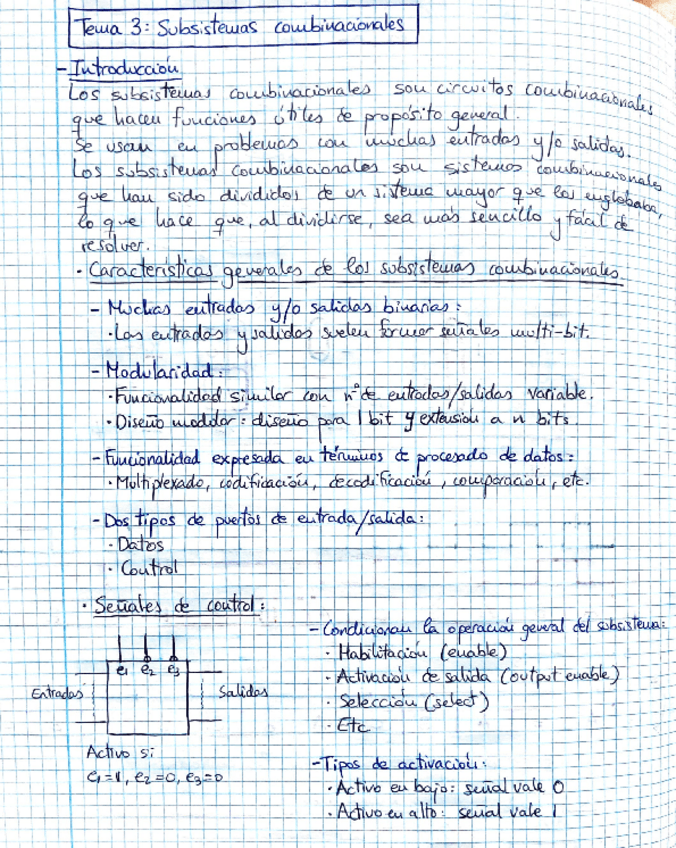 Tema 3: Subsistemas combinacionales
- Introducción
Los subsistemas combinacionales son circuitos combinacionales
que hacen funciones útiles de propósito general.
Se usan en problemas con muchas entradas y/o salidas.
Los subsistemas combinacionales son sistemas combinacionales
que han sido divididos de un sistema mayor que los englobaba,
lo que hace que, al dividirse, sea más sencillo y fácil de
resolver.
· Características generales de los subsistemas combinacionales
- Muchas entradas y/o salidas binarias:
· Las entradas y salidas suelen formar señales multi-bit.
- Modularidad:
· Funcionalidad similar con nº de entradas/salidas variable.
· Diseño modular: diseño para 1 bit y extensión a n bits
- Funcionalidad expresada en términos de procesado de datos:
· Multiplexado, codificación, decodificación, comparación, etc.
- Dos tipos de puertos de entrada/salida:
· Datos
· Control
· Señales de control:
e1 e2 e3
Entradas Salidas
Activo si
e1=1, e2=0, e3=0
- Condicionan la operación general del subsistema:
· Habilitación (enable)
· Activación de salida (output enable)
· Selección (select)
· Etc
- Tipos de activación:
· Activo en bajo: señal vale 0
· Activo en alto: señal vale 1